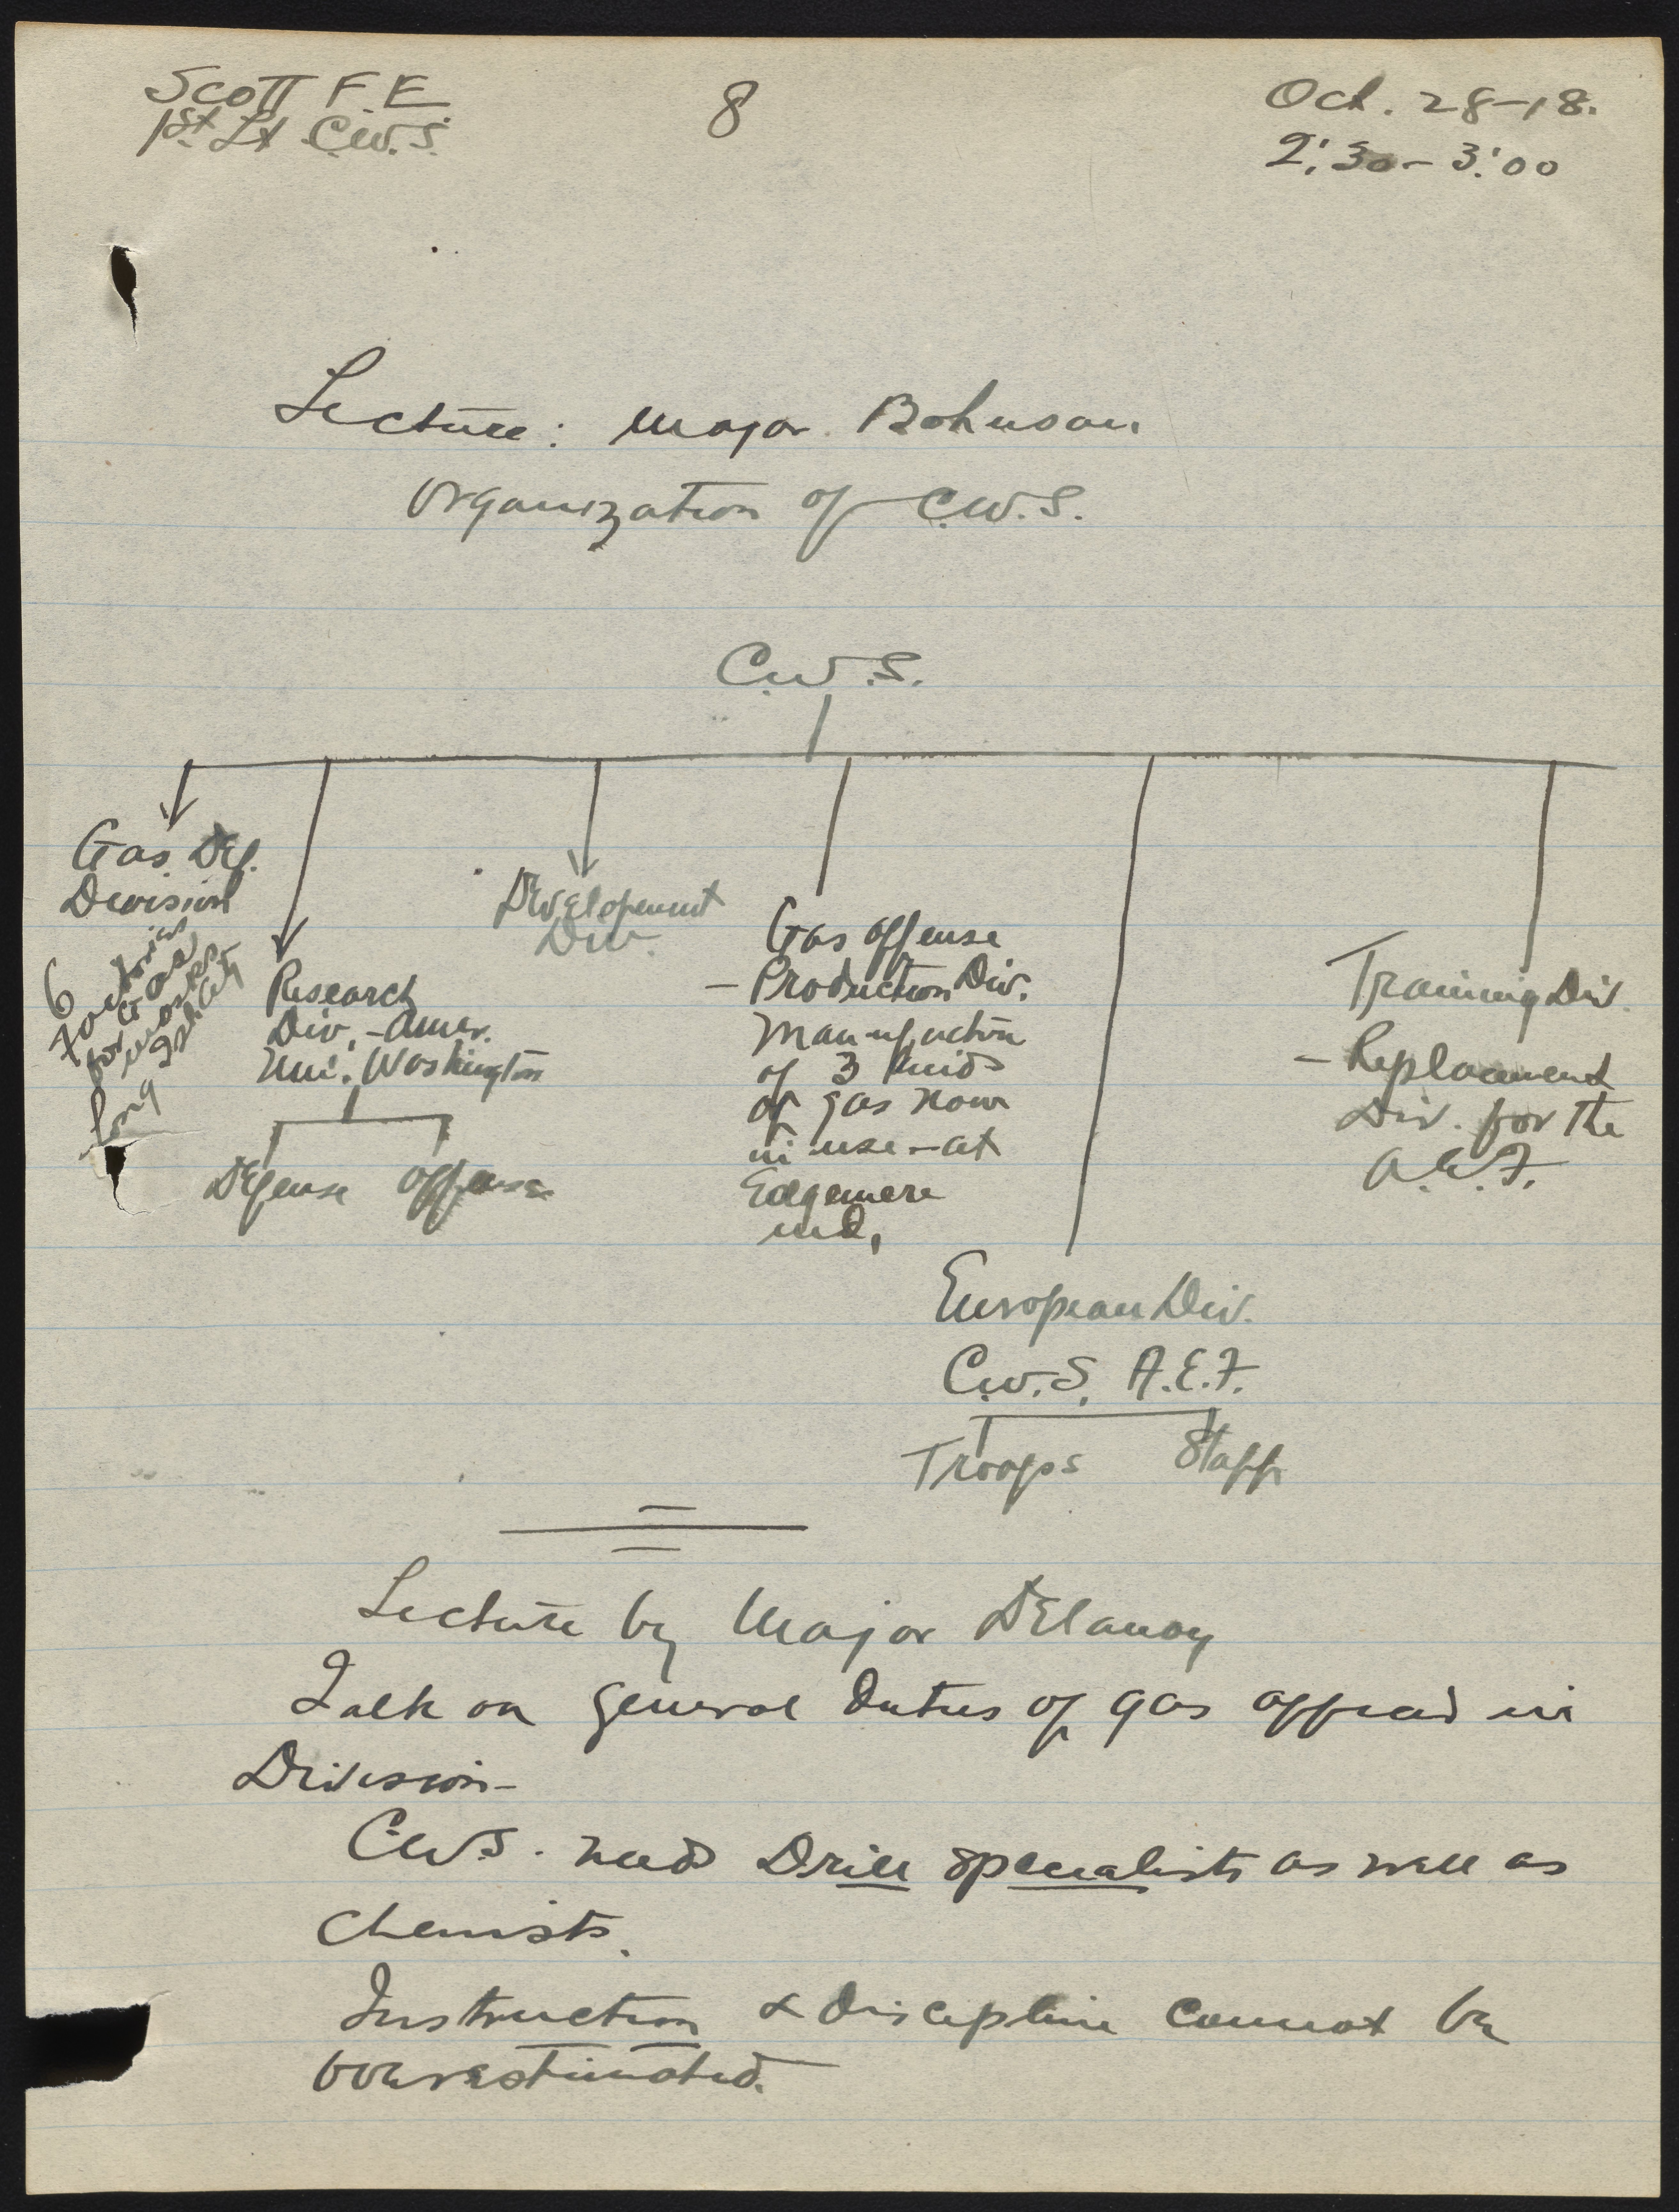 Scott F.E.
1st Lt C.W.S.
8
Oct. 28-18.
2:30 - 3:00
Lecture: Major Bohnson
Organization of C.W.S.
C.W.S.
Gas Def.
Division
6
factories
for Gas
masks
Long
Research
Div. - Amer.
Uni. Washington
Defense Offense
Development
Div.
Gas Offense
- Production Div.
Manufacture
of 3 kinds
of gas now
in use - at
Edgemere
Md.
European Div.
C.W.S. A.E.F.
Troops Staff
Training Div.
- Replacement
Div. for the
A.E.F.
Lecture by Major Delanoy
Talk on general duties of gas officer in
Division -
C.W.S. need Drill specialists as well as
chemists.
Instruction & Discipline cannot be
overestimated.